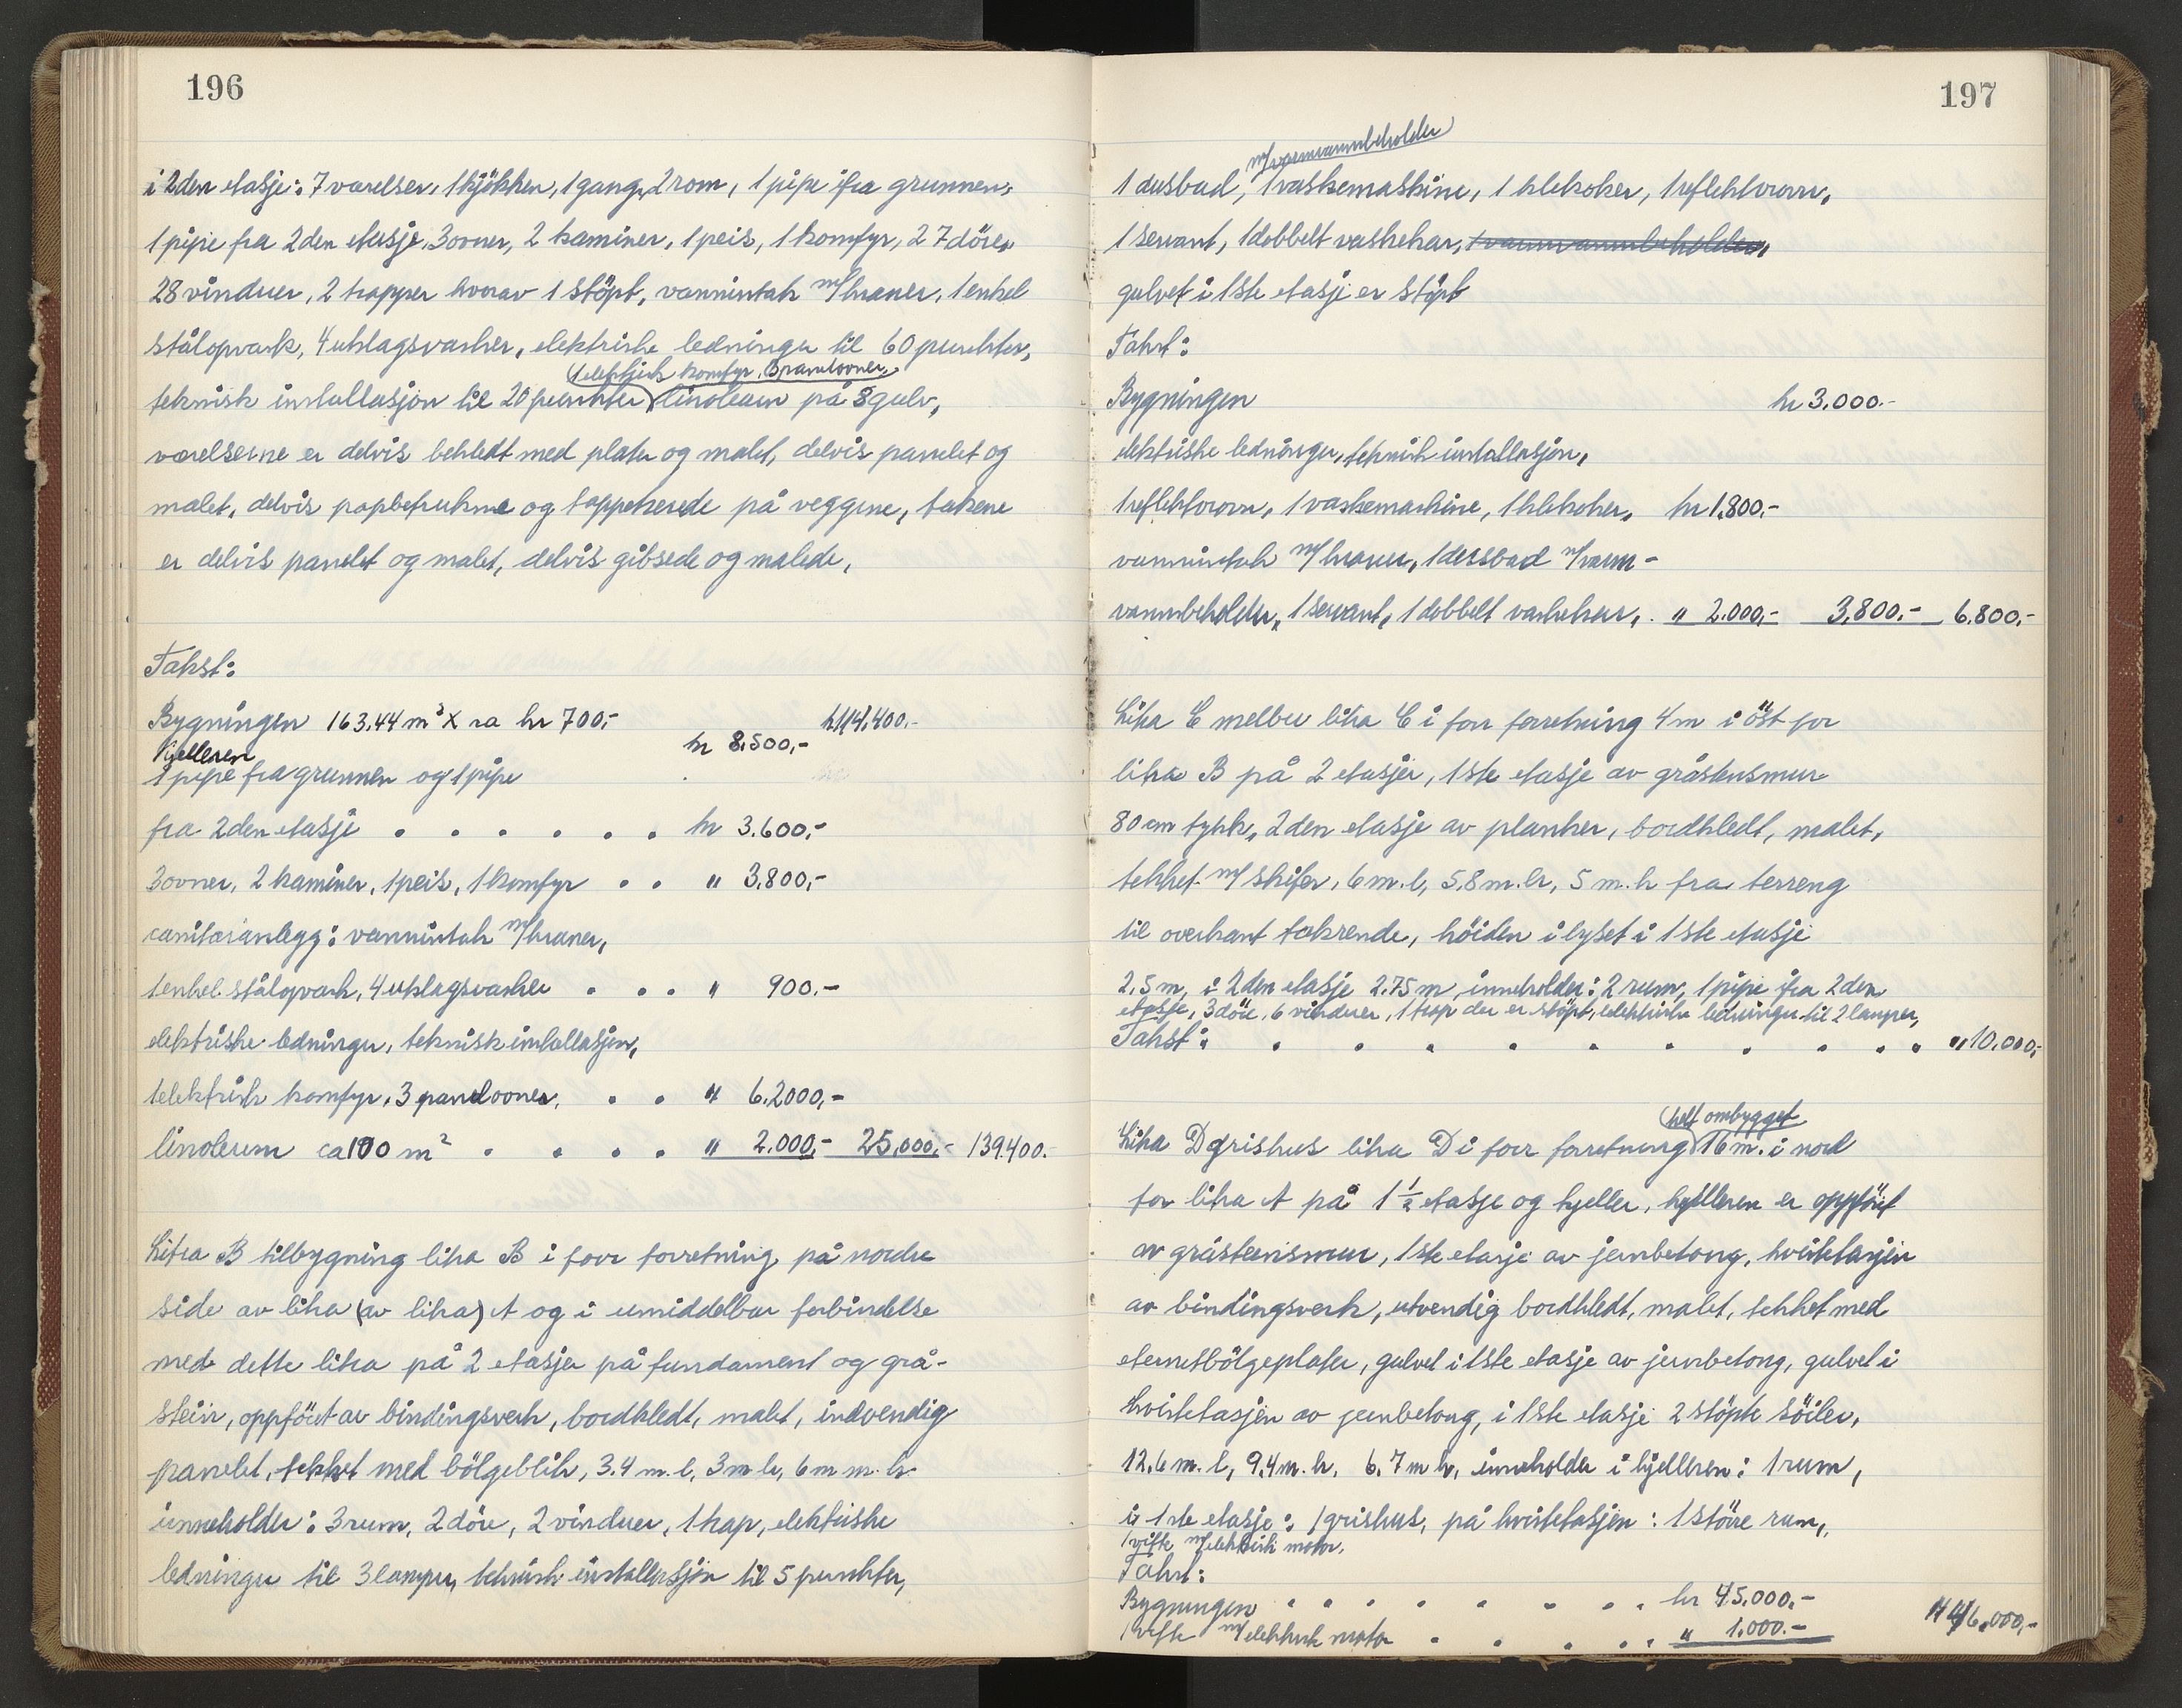 196
i 2den etasje: 7 værelser, 1 kjökken, 1 gang, 2 rom, 1 pipe ifra grunnen,
1 pipe fra 2den etasje, 3 ovner, 2 kaminer, 1 peis, 1 komfyr, 27 döre,
28 vinduer, 2 trapper hvorav 1 stöpt, vanninntak m/kraner, 1 enkel
stålopvask, 4 utslagsvasker, elektriske ledninger til 60 punkter,
1 elektrisk komfyr, 3 panelovner,
teknisk installasjon til 20 punkter linoleum på 8 gulv,
værelserne er delvis bekledt med plater og malet, delvis panelet og
malet, delvis papbetrukne og tappeserede på veggene, takene
er delvis panelet og malet, delvis gibsede og malede,
Takst:
Bygningen 163.44 m² x ca kr 700,- kr 114,400,-
Kjelleren kr 8,500,-
1 pipe fra grunnen og 1 pipe
fra 2den etasje . . . . . . kr 3.600,-
3 ovner, 2 kaminer, 1 peis, 1 komfyr . . " 3,800,-
sanitæranlegg: vanninntak m/kraner,
1 enkel stålopvask, 4 utslagsvasker . . . " 900.-
elektriske ledninger, teknisk installasjon,
1 elektrisk komfyr, 3 panelovner, . . " 6.2000,-
linoleum ca 100 m² . . . . " 2.000,- 25,000,- 139.400.-
Litra B tilbygning litra B i forr forretning på nordre
side av litra (av litra) A og i umiddelbar forbindelse
med dette litra på 2 etasjer på fundament og grå-
stein, oppfört av bindingsverk, bordkledt, malet, indvendig
panelet, tekket med bölgeblik, 3.4 m.l, 3 m br, 6 m m. h.
inneholder: 3 rum, 2 döre, 2 vinduer, 1 trap, elektriske
ledninger til 3 lamper, teknisk installasjon til 5 punkter,
197
m/varmvannbeholder
1 dusbad, 1 vaskemaskine, 1 klekoker, 1 reflektorovn,
1 servant, 1 dobbelt vaskekar, 1 varmvannbeholder,
gulvet i 1ste etasje er stöpt
Takst:
Bygningen kr 3.000.-
elektriske ledninger, teknisk installasjon,
1 reflektorovn, 1 vaskemaskine, 1 klekoker, kr 1,800,-
vanninntak m/kraner, 1 dusbad m/varm-
vannbeholder, 1 servant, 1 dobbelt vaskekar, . " 2.000,- 3,800.- 6.800.-
Litra C melbu litra C i forr forretning 4 m i öst for
litra B på 2 etasjer, 1ste etasje av gråstensmur
80 cm tykk, 2den etasje av planker, bordkledt, malet,
tekket m/skifer, 6 m.l, 5,8 m.br, 5 m.h fra terreng
til overkant takrende, höiden i lyset i 1ste etasje
2,5 m, i 2den etasje 2.75 m, inneholder: 2 rum, 1 pipe ifra 2den
etasje, 3 döre, 6 vinduer, 1 trap der er stöpt, elektriske ledninger til 2 lamper,
Takst: . . . . . . . . . . " 10.000,-
helt ombygget
Litra D grishus litra D i forr forretning 16 m. i nord
for litra A på 1 ½ etasje og kjeller, kjelleren er oppfört
av gråsteensmur, 1ste etasje av jernbetong, kvistetasjen
av bindingsverk, utvendig bordkledt, malet, tekket med
eternitbölgeplater, gulvet i 1ste etasje av jernbetong, gulvet i
kvistetasjen av jernbetong, i 1ste etasje 2 stöpte söiler,
12,6 m. l, 9,4 m. br. 6.7 m h, inneholder i kjelleren: 1 rum,
i 1ste etasje: 1 grishus, på kvistetasjen: 1 större rum,
1 vifte m/elektrisk motor,
Takst:
Bygningen . . . . . . . . . kr 45.000.-
1 vifte m/elektrisk motor . . . . . " 1.000.- " 46.000,-